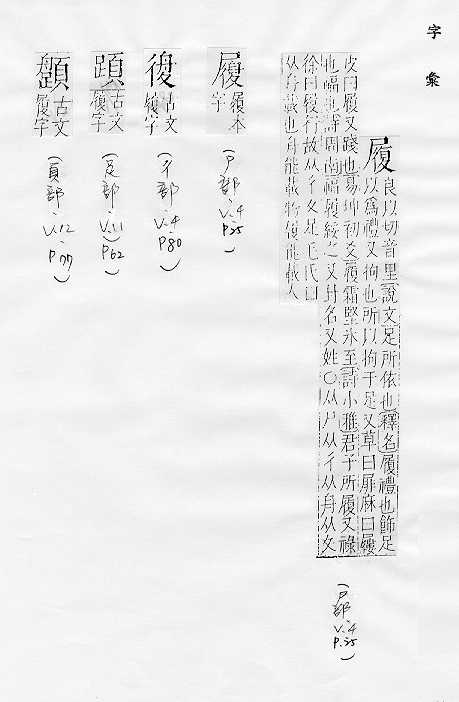 字彙
履
良以切音里說文足所依也釋名履禮也飾足
以為禮又拘也所以拘于足又草曰屝麻曰屨
皮曰履又踐也易坤初爻履霜堅氷至詩小雅君子所履又祿
也福也詩周南福履綏之又封名又姓〇从尸从彳从舟从夊
徐曰履行故从彳夊足也毛氏曰
从舟載也舟能載物履能載人
(尸部、V.4 P.25)
履 履本字
(尸部、V.4 P.25)
古文履字
(彳部、V.4 P.80)
䪴 古文履字
(足部、V.11 P.62)
古文履字
(頁部、V.12 P.77)